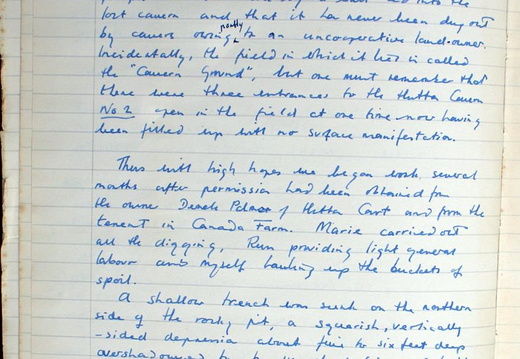 lost cavern and that it has never been dug out
by cavers owing mostly to an uncooperative land-owner.
Incidentally, the field in which it lies is called
the "Cavern Ground", but one must remember that
there were three entrances to the Hutton Cavern
No. 2 open in the field at one time now having
been filled up with no surface manifestation.
Thus with high hopes we began work, several
months after permission had been obtained from
the owner Derek of Hutton Court and from the
tenent in Canada Farm. Marie carried out
all the digging, Rum providing light general
labour and myself hauling up the buckets of
spoil.
A shallow trench was sunk on the northern
side of the rocky pit, a squarish, vertically
-sided depression about five to six feet deep
overshadowed by